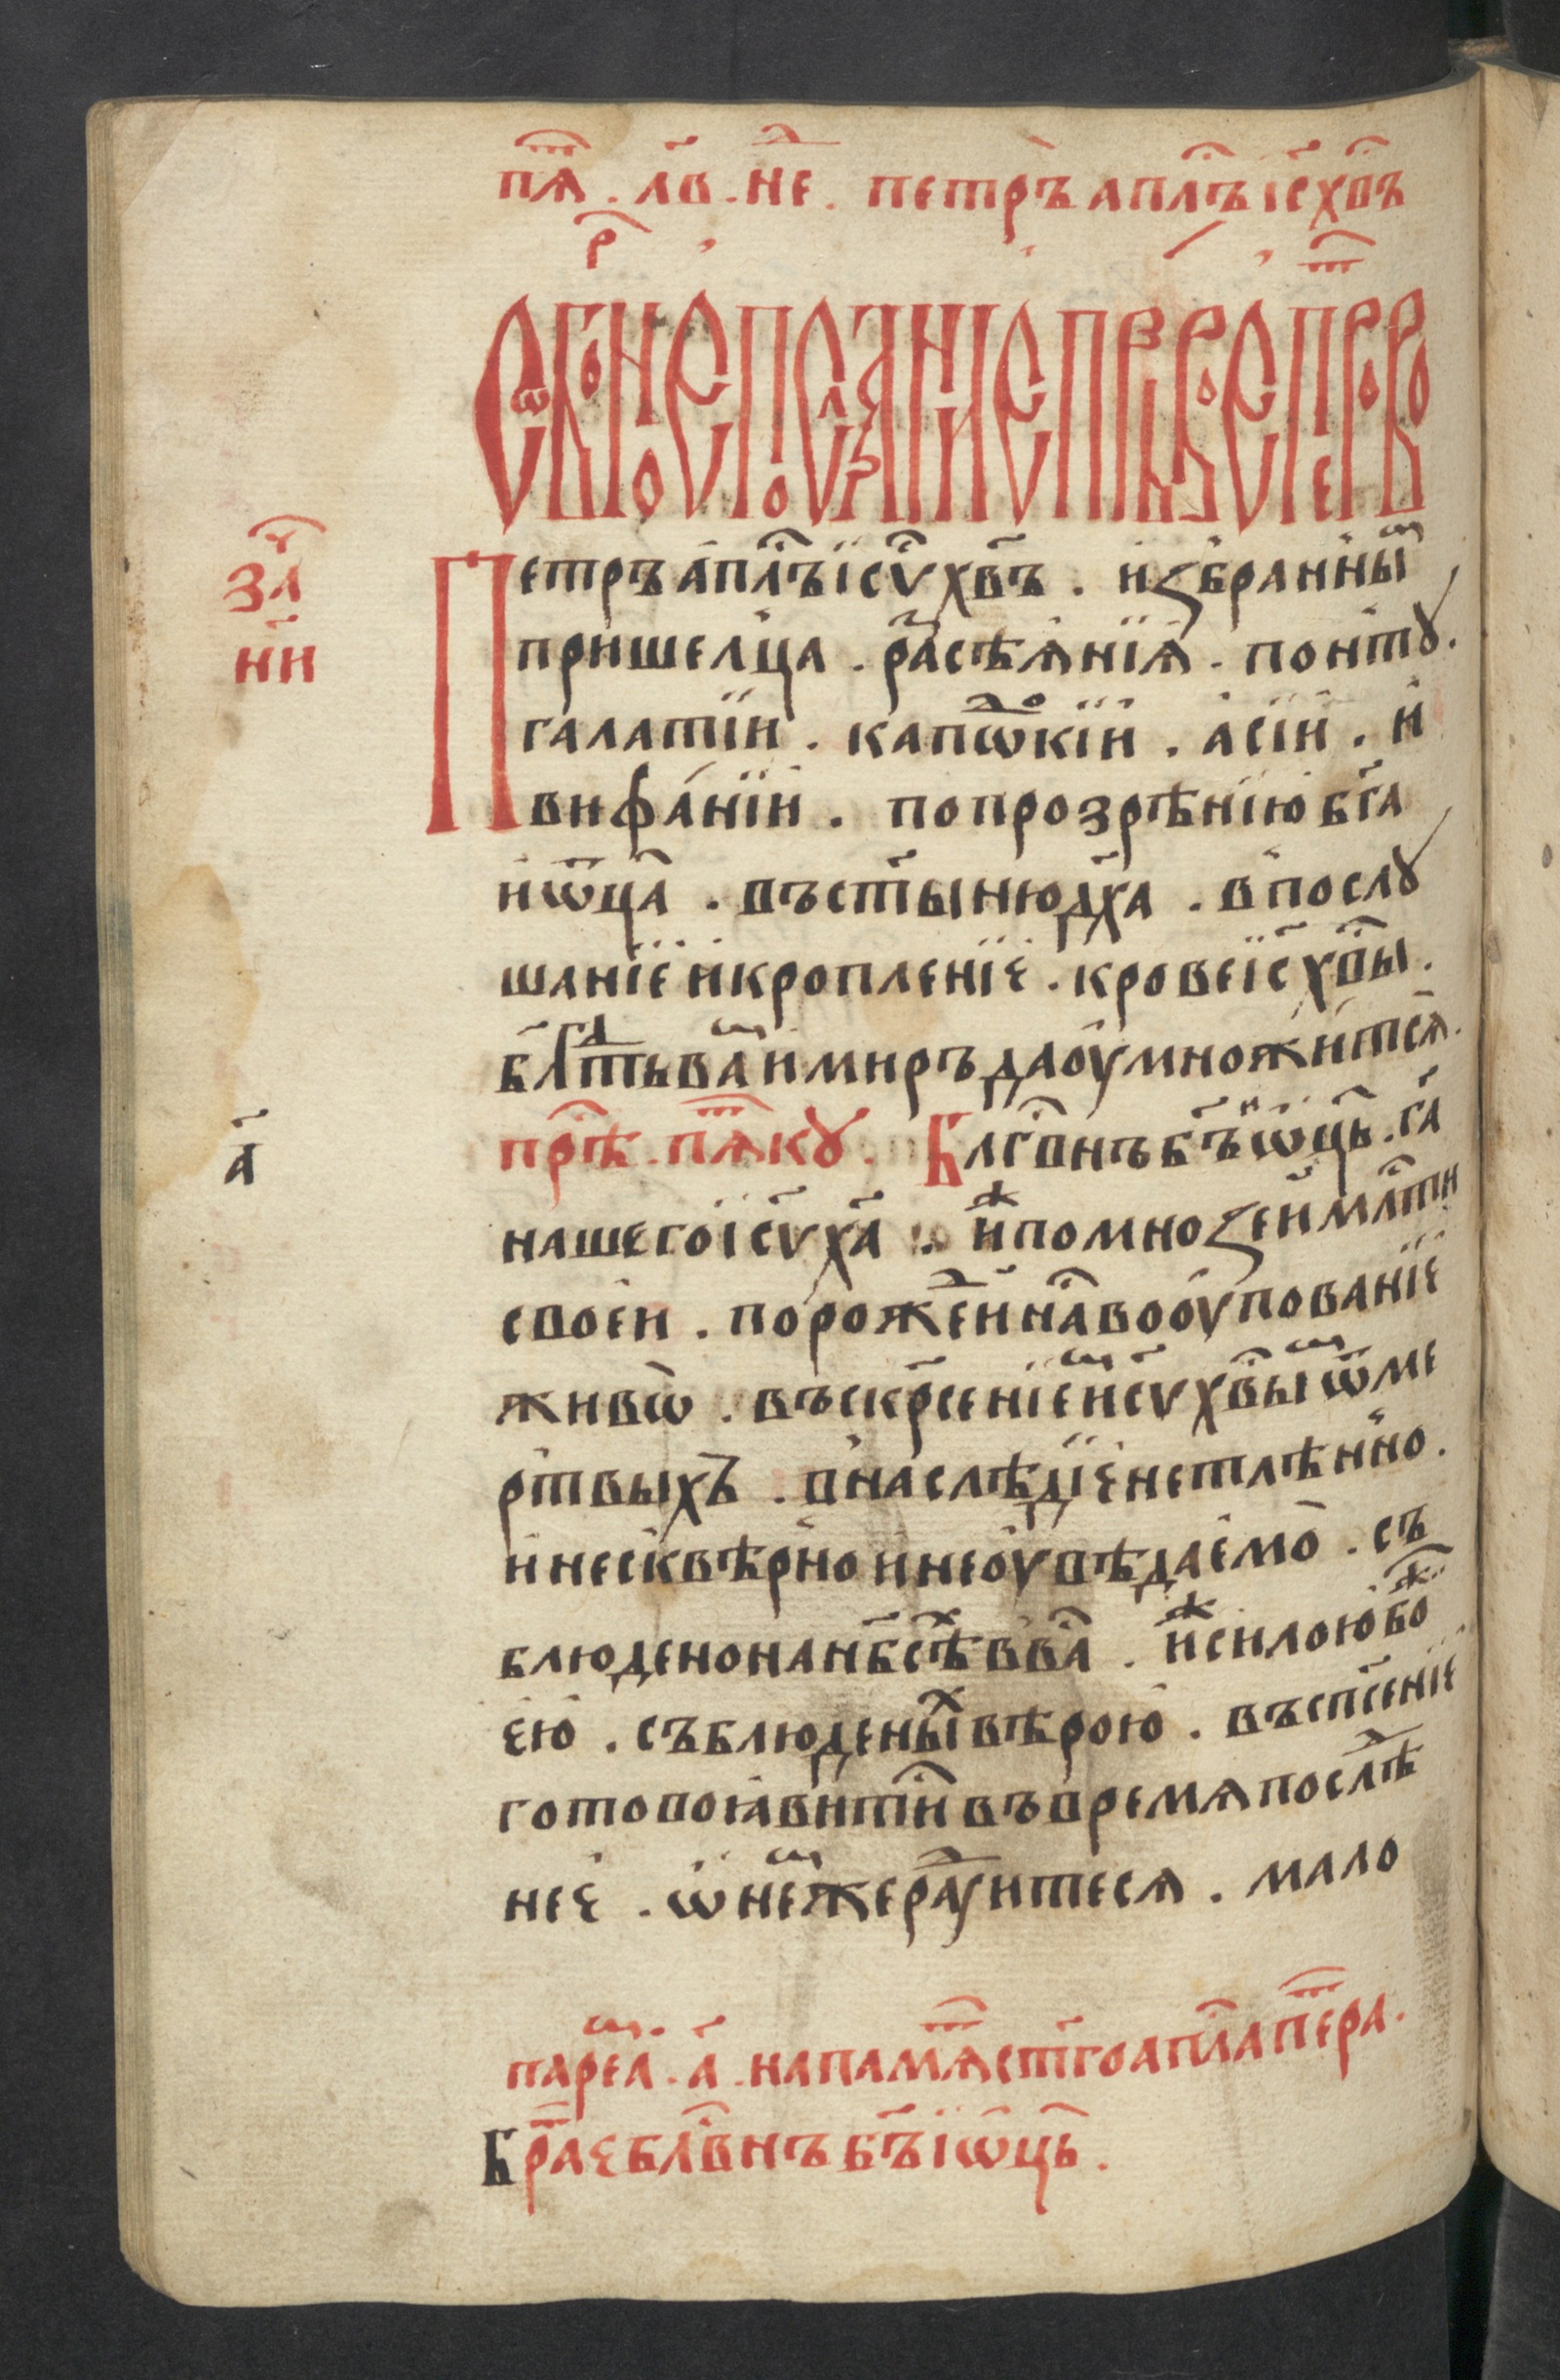 пѧ҃ . л҃в . не҃ . петръ апл҃ъ іс҃ хв҃ъ
соборное посланіе първое петрово
зⷱ҇л
н҃и
Петръ а҆пл҃ъ і҆су҃ хв҃ъ . и҆ꙁбранны
пришелца . расѣѧнїѧ . понтꙋ .
галатїи . капѿкїи . асїи . и҆
вифанїи . по прозрѣнїю бг҃а
и҆ ѿц҃а . въ ст҃ыню дх҃а . в послꙋ
шанїе и҆ кропленїе . крове іс҃ хв҃ы .
блг҃дть ва и миръ да оу҆множитсѧ .
прⷣѣ . пѧ҃кꙋ . Блгⷭ҇внъ бъ҃ і ѿц҃ь . г҃а
а҃
нашего і҆су҃ х҃а . и҆ⷤ по мноꙁеи млⷭ҇ти
своеи . порожеи на во оу҆пованїе
живѡ . въскрⷭ҇сенїе исꙋ҃ хв҃ы ѿ ме
ртвыхъ . в наслѣдїе нетлѣнно .
и нескверно и неоу҆вѣдаемо . съ
блюдено на нб҃сѣⷯ в ва . иⷤ силою бо
ею . съблюденыⷯ вѣрою . въ спⷭ҇енїе
готово ꙗ҆витиⷭ въ времѧ послѣ
нее . ѡ неⷨже раꙋитесѧ . мало
пареⷨл . а҃ . на памѧ ст҃го апл҃а пера .
Браⷮе блⷭ҇внъ бъ҃ і ѿц҃ь .